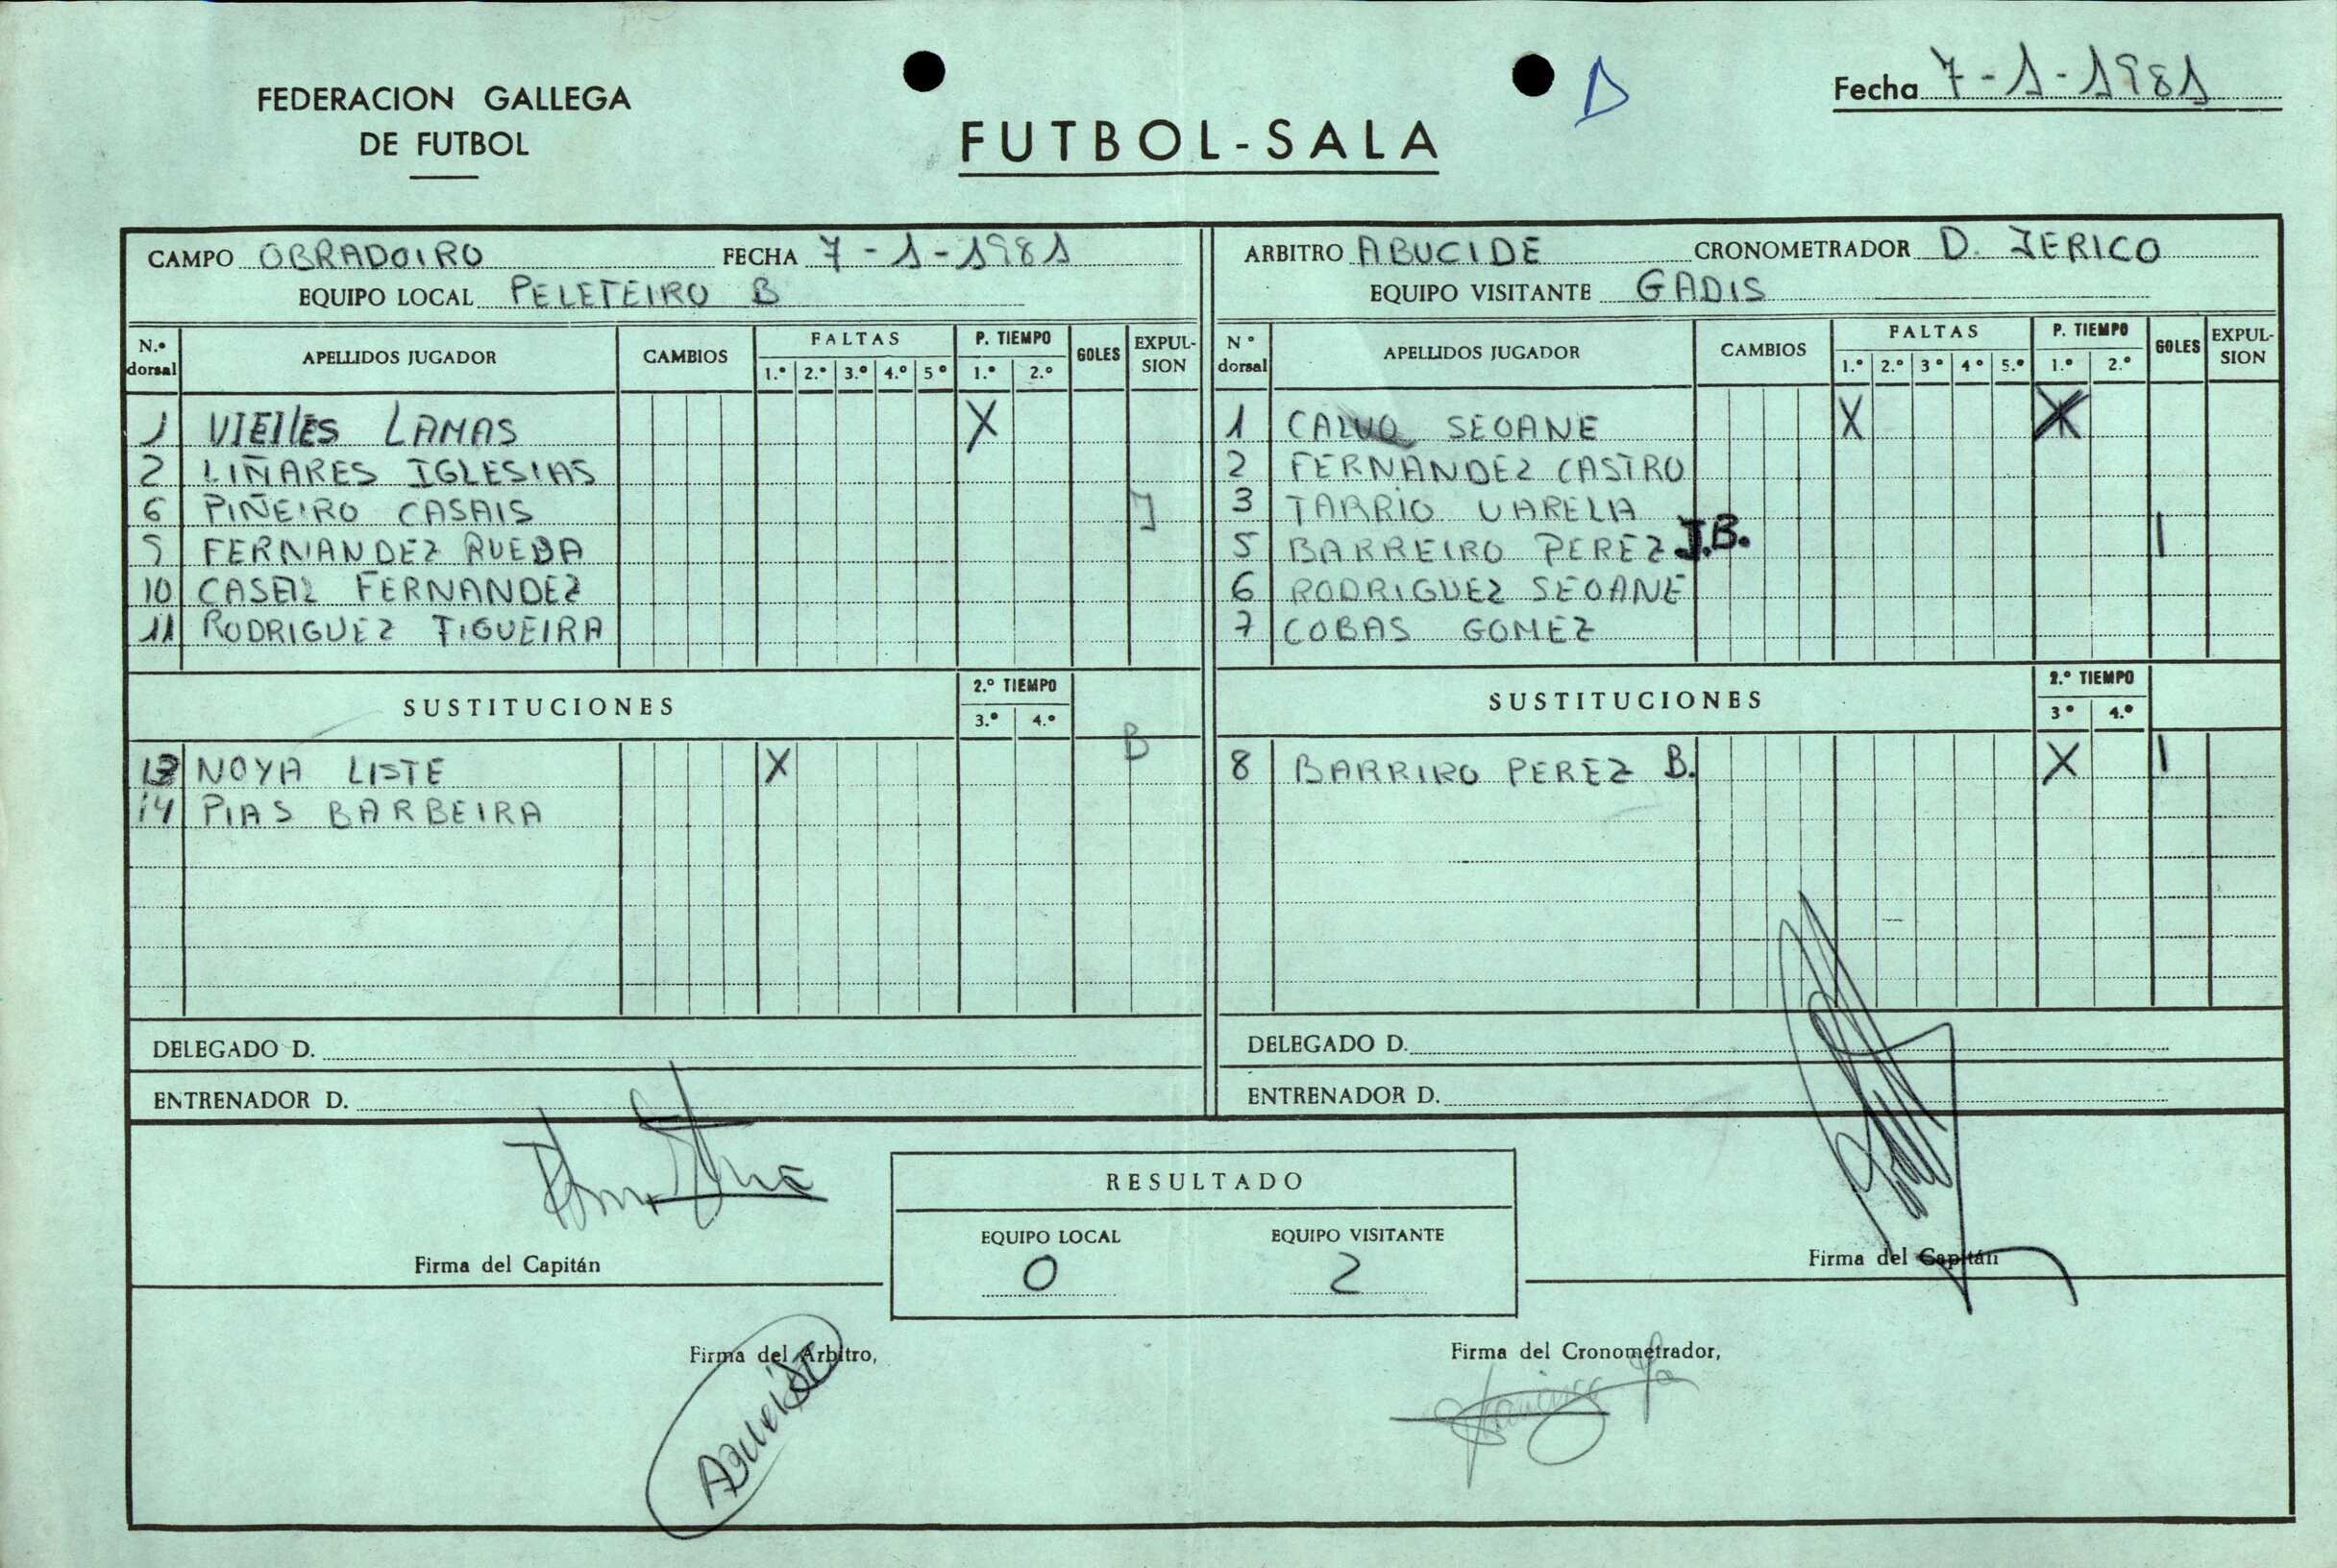 FEDERACION GALLEGA
DE FUTBOL
FUTBOL-SALA
D
Fecha 7-1-1981
CAMPO OBRADOIRO FECHA 7-1-1981
EQUIPO LOCAL PELETEIRO B
N.º dorsal APELLIDOS JUGADOR CAMBIOS FALTAS 1.º 2.º 3.º 4.º 5º P. TIEMPO 1.º 2.º GOLES EXPULSION
1 VIEITES LAMAS X
2 LIÑARES IGLESIAS
6 PIÑEIRO CASAIS
9 FERNANDEZ RUEDA
10 FERNANDEZ
11 RODRIGUEZ FIGUEIRA
SUSTITUCIONES 2.º TIEMPO 3.º 4.º
B
13 NOYA LISTE X
14 PIAS BARBEIRA
DELEGADO D.
ENTRENADOR D.
ARBITRO ABUCIDE CRONOMETRADOR D. JERICO
EQUIPO VISITANTE GADIS
Nº dorsal APELLIDOS JUGADOR CAMBIOS FALTAS 1.º 2.º 3º 4º 5.º P. TIEMPO 1.º 2.º GOLES EXPULSION
1 CALVO SEOANE X X
2 FERNANDEZ CASTRO
3 TARRIO VARELA
5 BARREIRO PEREZ J.B. I
6 RODRIGUEZ SEOANE
7 COBAS GOMEZ
SUSTITUCIONES 2.º TIEMPO 3º 4.º
8 BARRIRO PEREZ B. X I
DELEGADO D.
ENTRENADOR D.
Firma del Capitán
RESULTADO
EQUIPO LOCAL EQUIPO VISITANTE
0 2
Firma del Capitán
Firma del Arbitro,
Firma del Cronometrador,